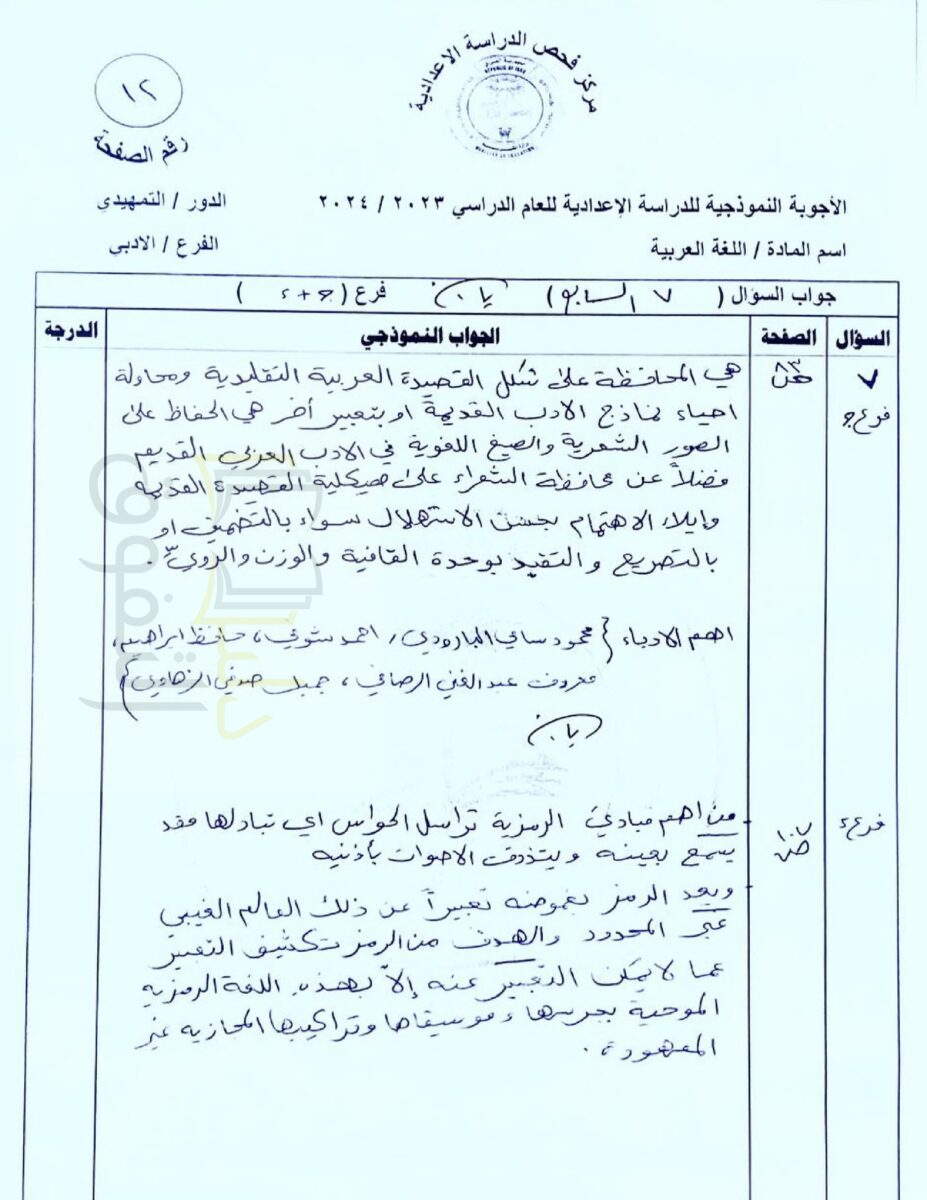 مركز فحص الدراسة الإعدادية
١٢
رقم الصفحة
الأجوبة النموذجية للدراسة الإعدادية للعام الدراسي ٢٠٢٣ / ٢٠٢٤ الدور / التمهيدي
اسم المادة / اللغة العربية الفرع / الادبي
جواب السؤال ( ٧ السابع ) فرع ( جـ + د )
السؤال الصفحة الجواب النموذجي الدرجة
٧ ص ٨٣ هي المحافظة على شكل القصيدة العربية التقليدية ومحاولة
فرع جـ احياء نماذج الادب القديمة او بتعبير أخر هي الحفاظ على
الصور الشعرية والصيغ اللغوية في الادب العربي القديم
فضلاً عن محافظة الشعراء على هيكلية القصيدة القديمة
وإيلاء الاهتمام بحسن الاستهلال سواء بالتضمين او
بالتصريع والتقيد بوحدة القافية والوزن والرويّ .
اهم الادباء { محمود سامي البارودي، احمد شوقي، حافظ ابراهيم،
معروف عبد الغني الرصافي، جميل صدقي الزهاوي }
فرع د ص ١٠٧ - من اهم مبادئ الرمزية تراسل الحواس اي تبادلها فقد
يسمع بعينه ويتذوق الاصوات بأذنيه
- ويعد الرمز بغموضه تعبيراً عن ذلك العالم الغيبي
غير المحدود والهدف من الرمز تكثيف التعبير
عما لا يمكن التعبير عنه إلاّ بهذه اللغة الرمزية
الموحية بجرسها وموسيقاها وتراكيبها المجازية غير
المعهودة .